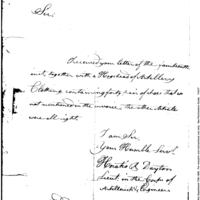 Sir
I received your letter of the
inst, together with a Hogshead of Artillery
Clothing containing forty pair of shoes that is
not mentioned in the invoice, the other articles
were all right.
I am Sir
Your Humble Servt
Horatio R Dayton
Lieut. in the Corps of
Artillerists & Engineers